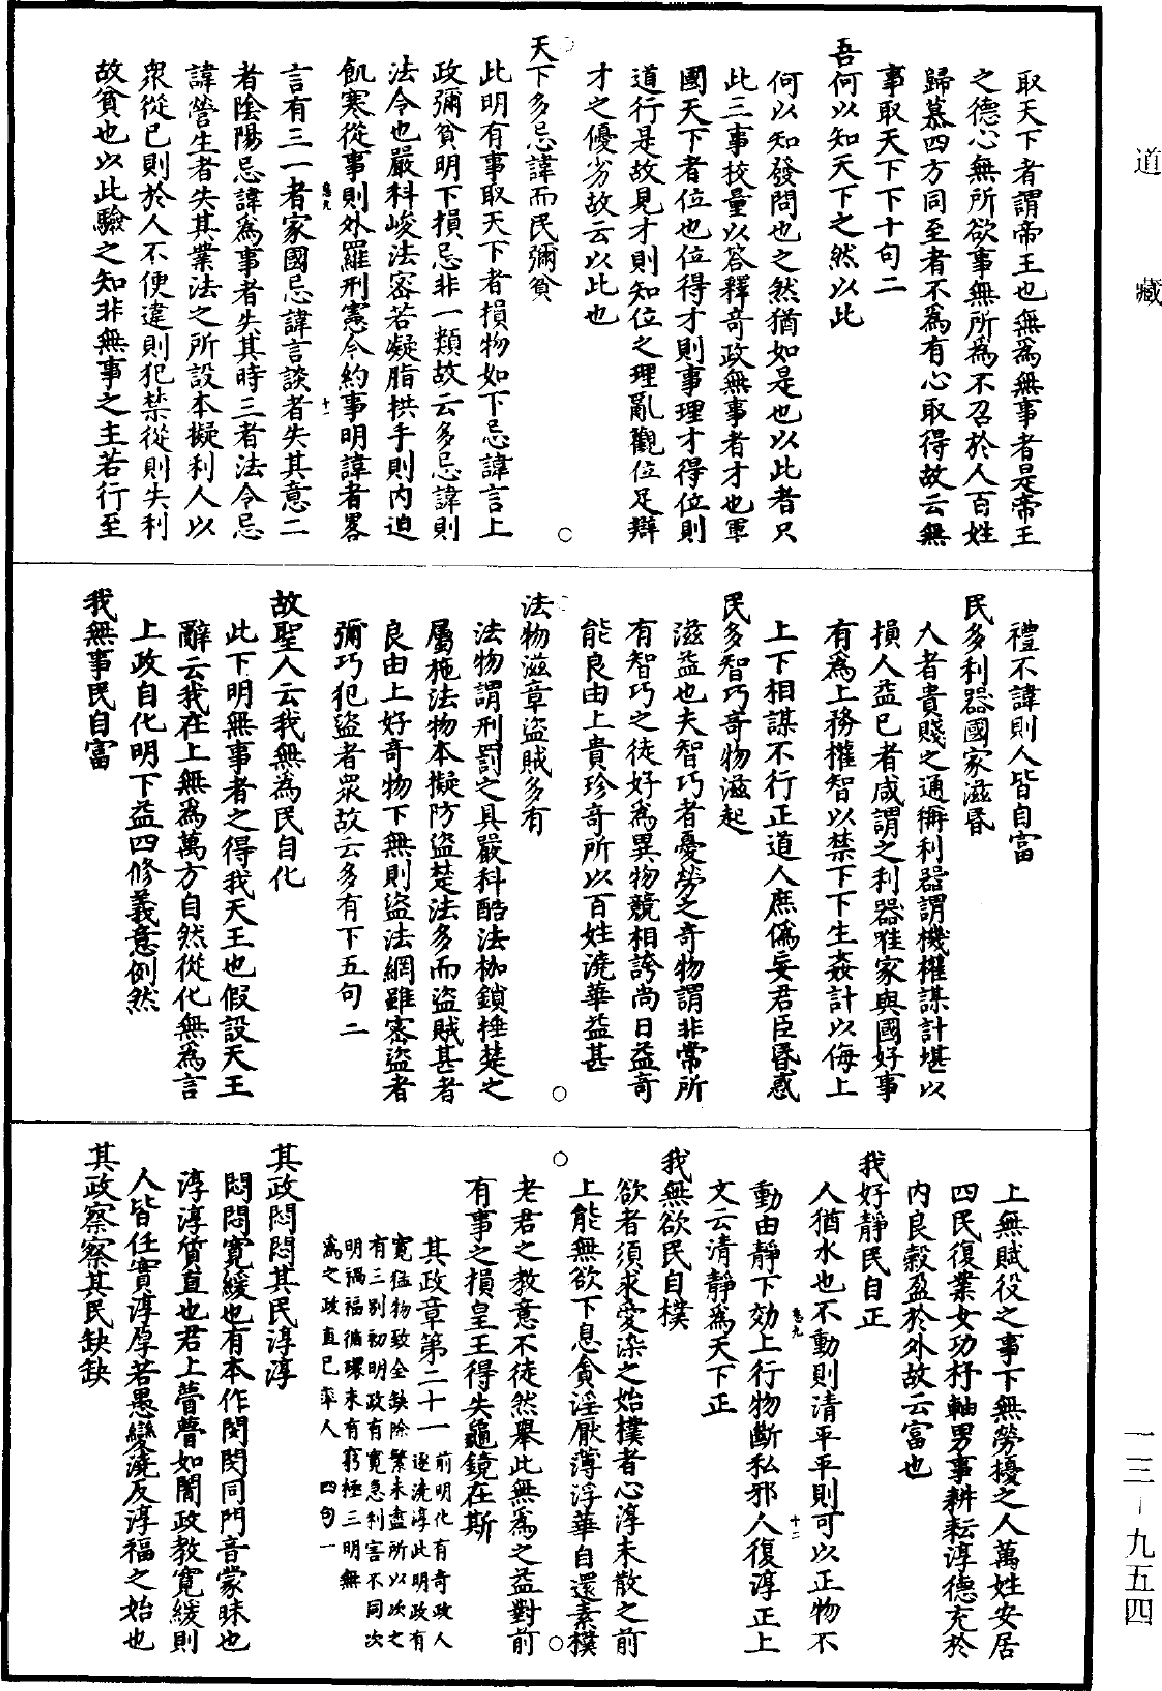 道藏
取天下者謂帝王也無爲無事者是帝王
之德心無所欲事無所爲不召於人百姓
歸慕四方同至者不爲有心取得故云無
事取天下下十句二
吾何以知天下之然以此
何以知發問也之然猶如是也以此者只
此三事校量以答釋奇政無事者才也軍
國天下者位也位得才則事理才得位則
道行是故見才則知位之理亂觀位足辯
才之優劣故云以此也
天下多忌諱而民彌貧
此明有事取天下者損物如下忌諱言上
政彌貧明下損忌非一類故云多忌諱則
法令也嚴科峻法密若凝脂拱手則內迫
飢寒從事則外羅刑憲今約事明諱者畧
卷九 十一
言有三一者家國忌諱言談者失其意二
者陰陽忌諱爲事者失其時三者法令忌
諱營生者失其業法之所設本擬利人以
衆從已則於人不便違則犯禁從則失利
故貧也以此驗之知非無事之主若行至
禮不諱則人皆自富
民多利器國家滋昬
人者貴賤之通稱利器謂機權謀計堪以
損人益已者咸謂之利器雖家與國好事
有爲上務權智以禁下下生姦計以侮上
上下相謀不行正道人庶僞妄君臣昬惑
民多智巧奇物滋起
滋益也夫智巧者憂勞之奇物謂非常所
有智巧之徒好爲異物競相誇尚日益奇
能良由上貴珍奇所以百姓澆華益甚
法物滋章盜賊多有
法物謂刑罰之具嚴科酷法枷鎖捶楚之
屬施法物本擬防盜楚法多而盜賊甚者
良由上好奇物下無則盜法網雖密盜者
彌巧犯盜者衆故云多有下五句二
故聖人云我無爲民自化
此下明無事者之得我天王也假設天王
辭云我在上無爲萬方自然從化無爲言
上政自化明下益四修義意例然
我無事民自富
上無賦役之事下無勞擾之人萬姓安居
四民復業女功杼軸男事耕耘淳德充於
內良穀盈於外故云富也
我好靜民自正
卷九 十二
人猶水也不動則清平平則可以正物不
動由靜下効上行物斷私邪人復淳正上
文云清靜爲天下正
我無欲民自樸
欲者須求愛染之始樸者心淳未散之前
上能無欲下息貪淫厭薄浮華自還素樸
老君之教意不徒然舉此無爲之益對前
有事之損皇王得失龜鏡在斯
其政章第二十一 前明化有奇政人
逐澆淳此明政有
寬猛物致全缺除繁未盡所以次之
有三別初明政有寬急利害不同次
明禍福循環未有窮極三明無
爲之政直已率人 四句一
其政悶悶其民淳淳
悶悶寬緩也有本作閔閔同門音蒙昧也
淳淳質直也君上瞢瞢如闇政教寛緩則
人皆任實淳厚若愚變澆反淳福之始也
其政察察其民缺缺
一三-九五四